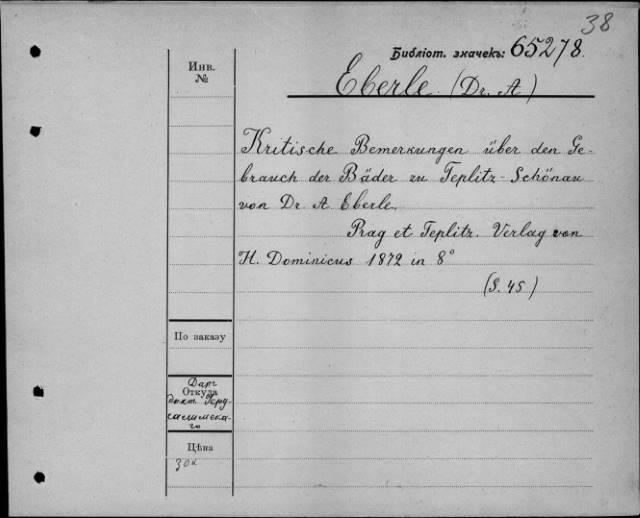 38
Библіот. значекъ: 65278.
Инв.
№
Eberle (Dr. A)
Kritische Bemerkungen über den Ge-
brauch der Bäder zu Teplitz-Schönau
von Dr. A Eberle.
Prag et Teplitz. Verlag von
H. Dominicus 1872 in 8°
(S. 45)
По заказу
Даръ
Откуда
докт. Герусалимска-
го
Цѣна
30к